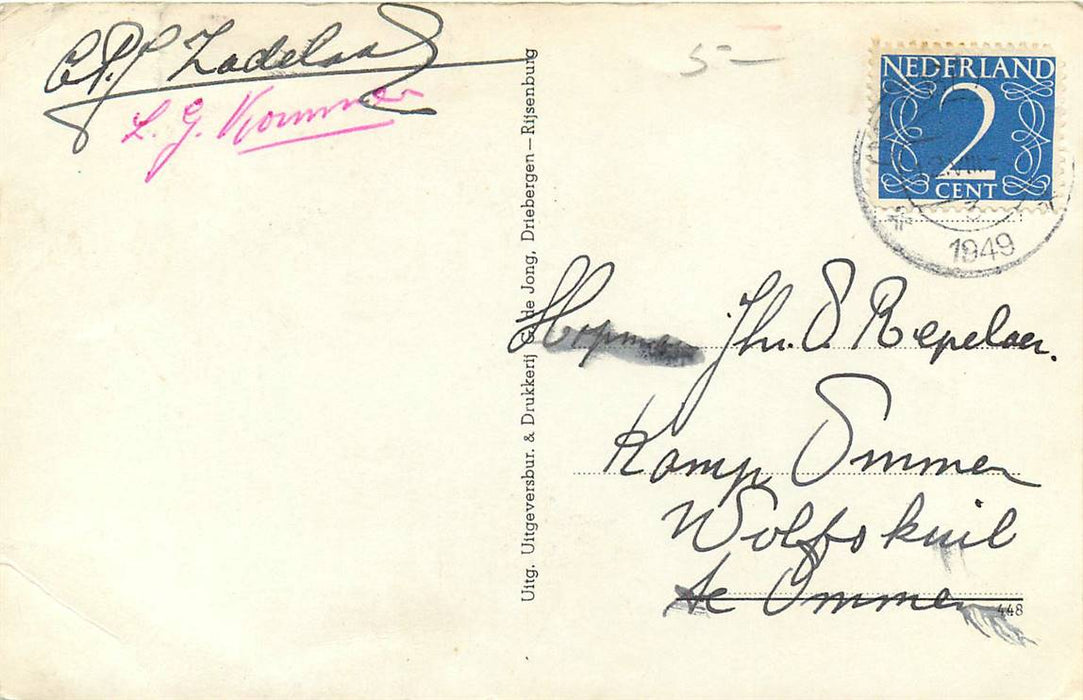 Zadelaa
L. G. Kommer
5-
NEDERLAND
2
CENT
1949
Uitg. Uitgeversbur. & Drukkerij G. de Jong, Driebergen — Rijsenburg
Hopman Jhr. O Repelaer.
Kamp Ommen
Wolfskuil
te Ommen
448